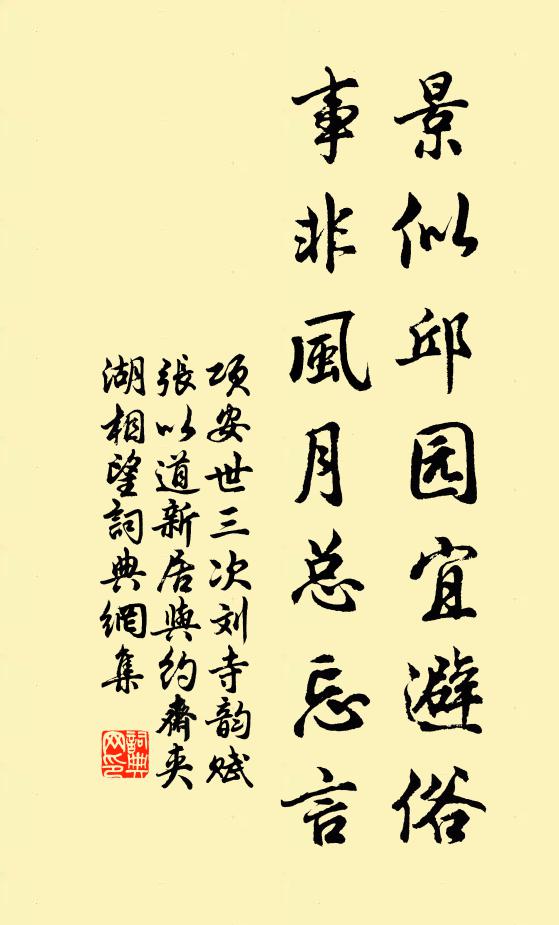 景似邱园宜避俗
事非風月总忘言
项安世三次刘寺韵赋
張以道新居與约齋夹
湖相望詞典網集
詞典网印